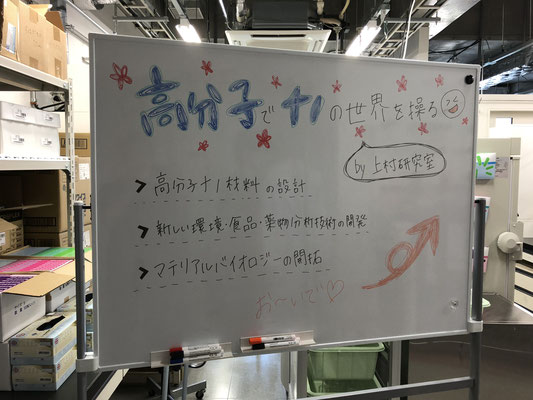 高分子でナノの世界を操る
by 上村研究室
> 高分子ナノ材料の設計
> 新しい環境・食品・薬物分析技術の開発
> マテリアルバイオロジーの開拓
お〜いで♡